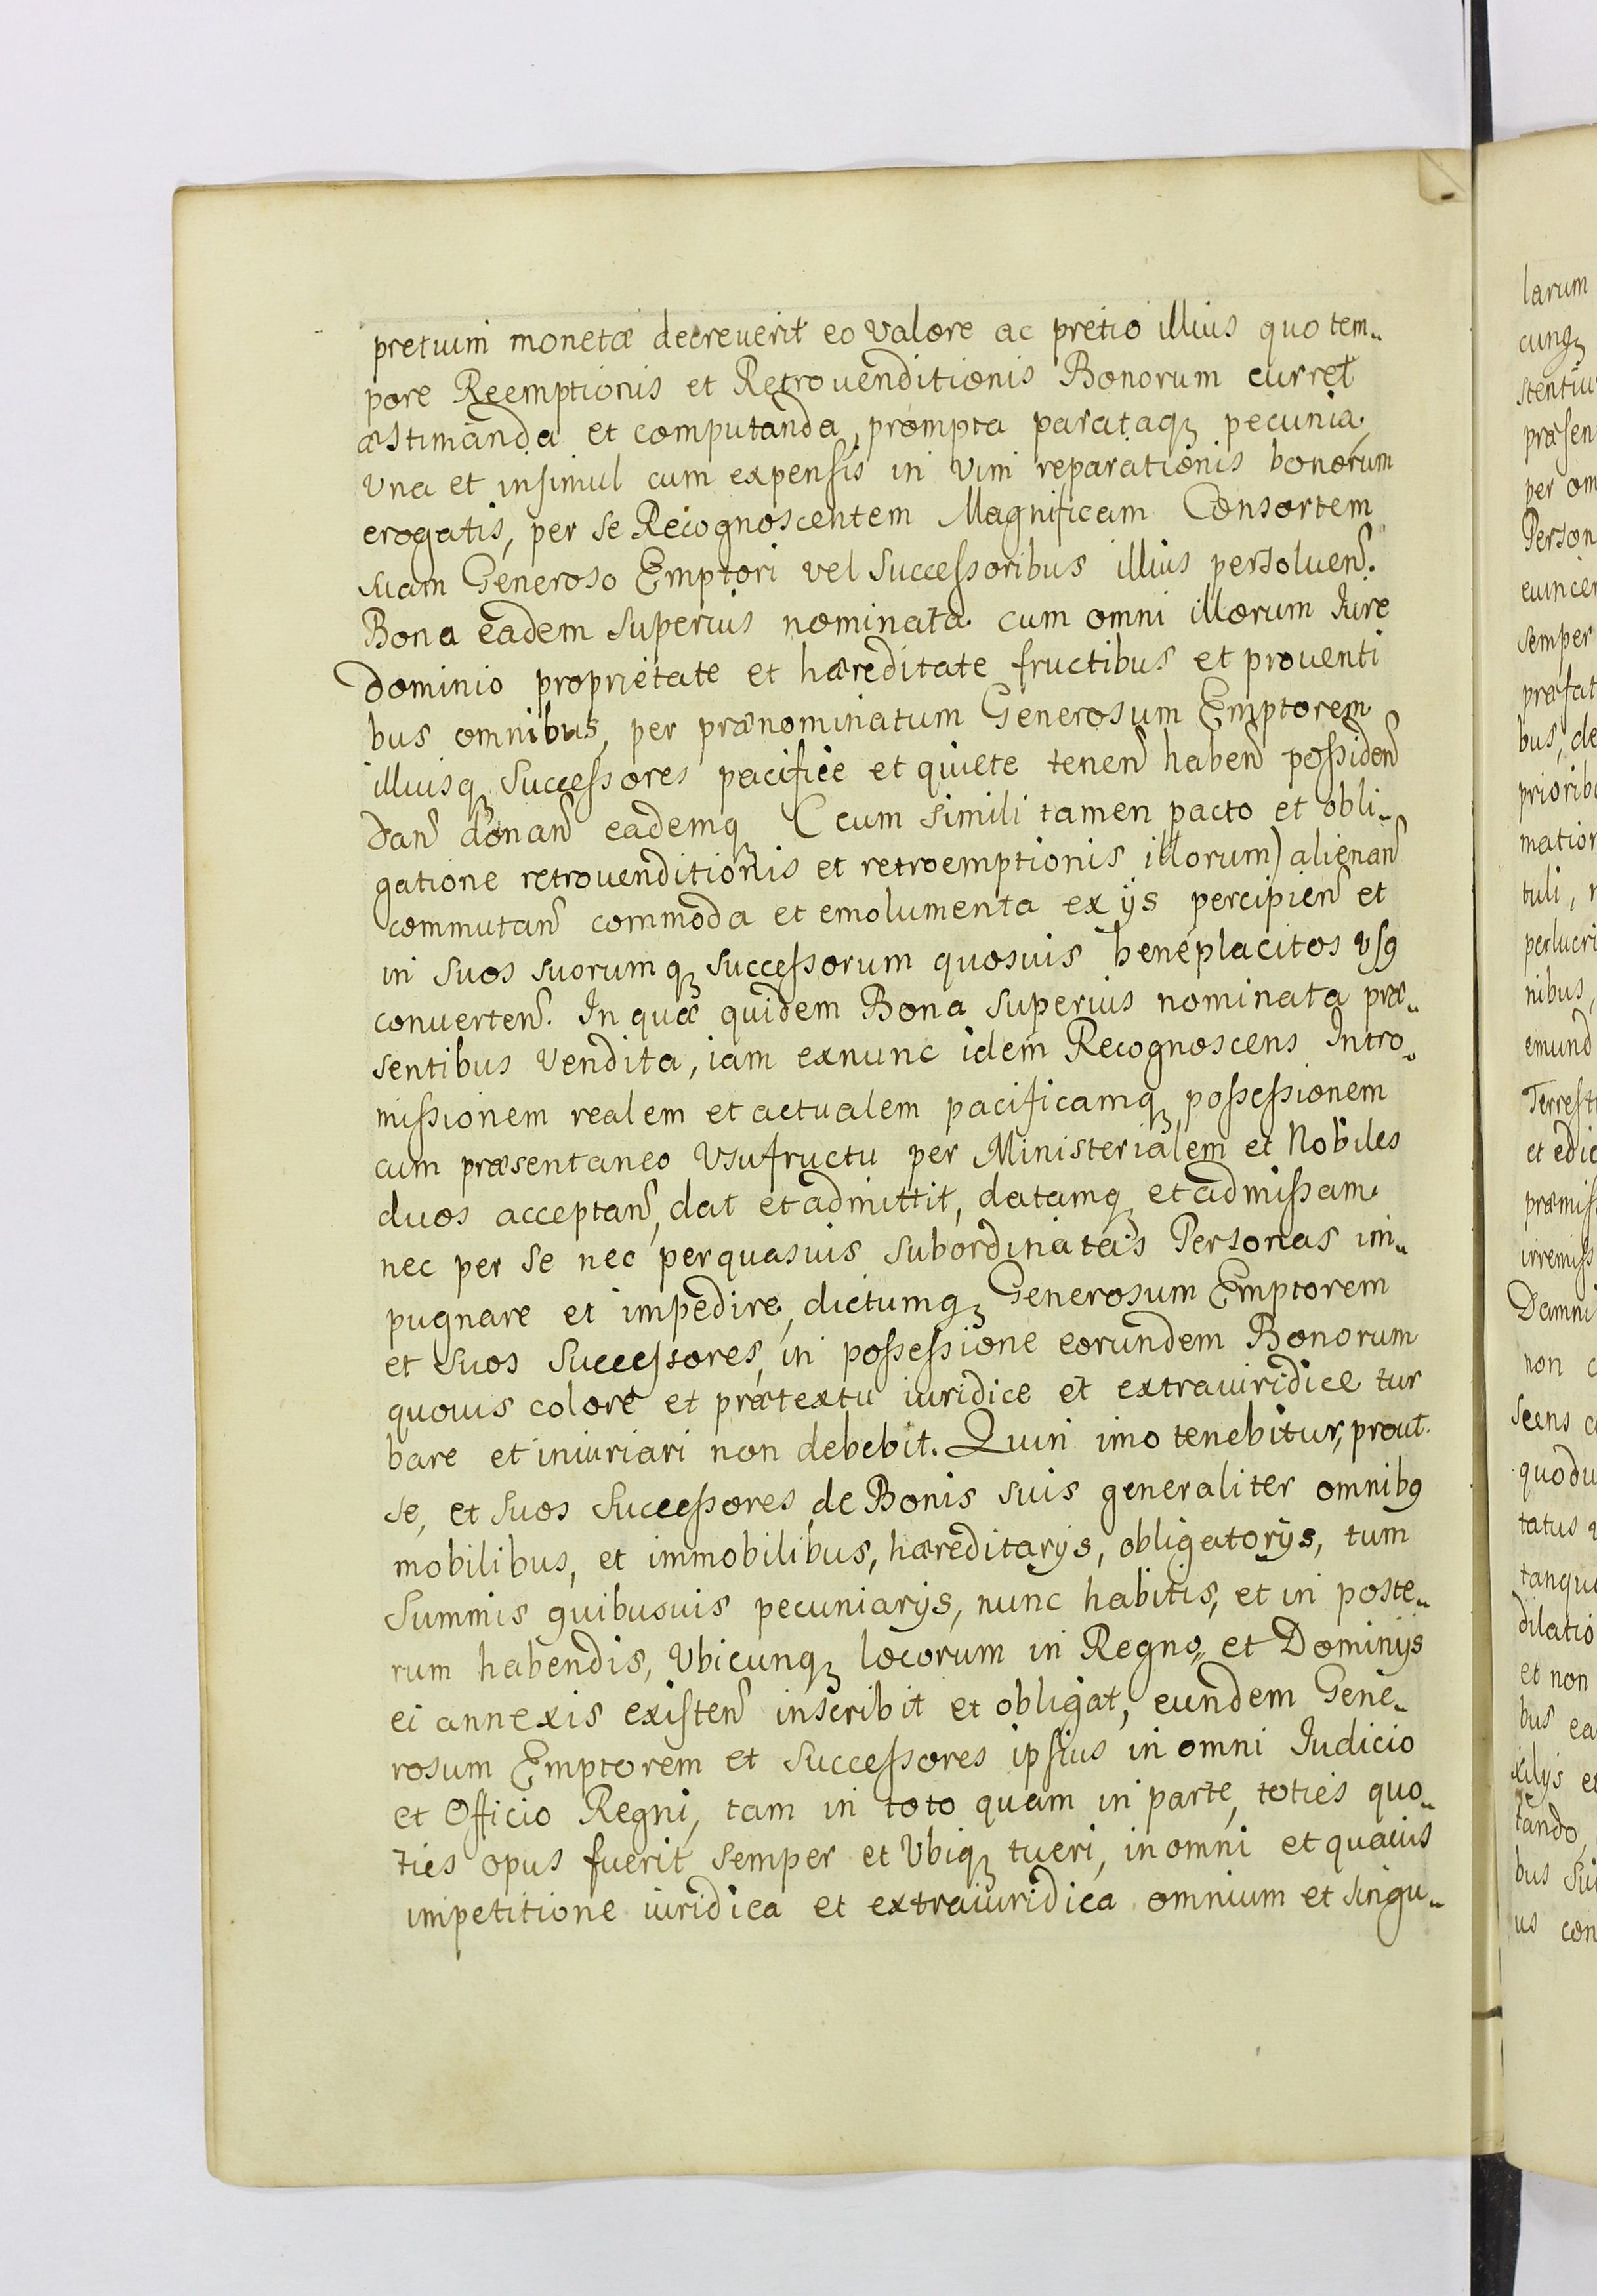 pretium monetæ decreverit eo valore ac pretio illius quo tem„
pore Reemptionis et Retrouenditionis Bonorum curret
æstimanda et computanda, prompta parataqꝫ pecunia,
vna et insimul cum expensis in vim reparationis bonorum
erogatis, per se Recognoscentem Magnificam Consortem
suam Generoso Emptori vel Successoribus illius persoluen̄.
Bona eadem superius nominata cum omni illorum Iure
dominio proprietate et hæreditate fructibus et prouenti
bus omnibus, per prænominatum Generosum Emptorem
illiusqꝫ Successores pacifice et quiete tenen̄ haben̄ possiden̄
dan̄ donan̄ eademqꝫ (cum simili tamen pacto et obli„
gatione retrouenditionis et retroemptionis illorum) alienan̄
commutan̄ commoda et emolumenta ex ijs percipien̄ et
in suos suorumqꝫ successorum quosuis beneplacitos vsꝯ
conuerten̄. In quæ quidem Bona superius nominata præ„
sentibus vendita, iam exnunc idem Recognoscens Intro„
missionem realem et actualem pacificamqꝫ possessionem
cum præsentaneo vsufructu per Ministerialem et Nobiles
duos acceptan̄, dat et admittit, datamqꝫ et admissam
nec per se nec per quasuis subordinatas Personas im„
pugnare et impedire, dictumqꝫ Generosum Emptorem
et suos Successores, in possessione eorundem Bonorum
quouis colore et prætextu iuridice et extraiuridice tur
bare et iniuriari non debebit. Quin imo tenebitur, prout
se, et suos Successores de Bonis suis generaliter omnibꝯ
mobilibus, et immobilibus, hæreditarijs, obligatorijs, tum
Summis quibusuis pecuniarijs, nunc habitis, et in poste„
rum habendis, Vbicunqꝫ locorum in Regno, et Dominijs
ei annexis existen̄ inscribit et obligat, eundem Gene„
rosum Emptorem et Successores ipsius in omni Iudicio
et Officio Regni, tam in toto quam in parte, toties quo„
ties opus fuerit semper et Vbiqꝫ tueri, in omni et quauis
impetitione iuridica et extraiuridica omnium et singu„
larum
cunqꝫ
per om
Person
semper
bus, de
tuli,
nibus,
et edic
non
quodu
tatus
dilatio
et non
bus ea
tando,
bus sui
us con